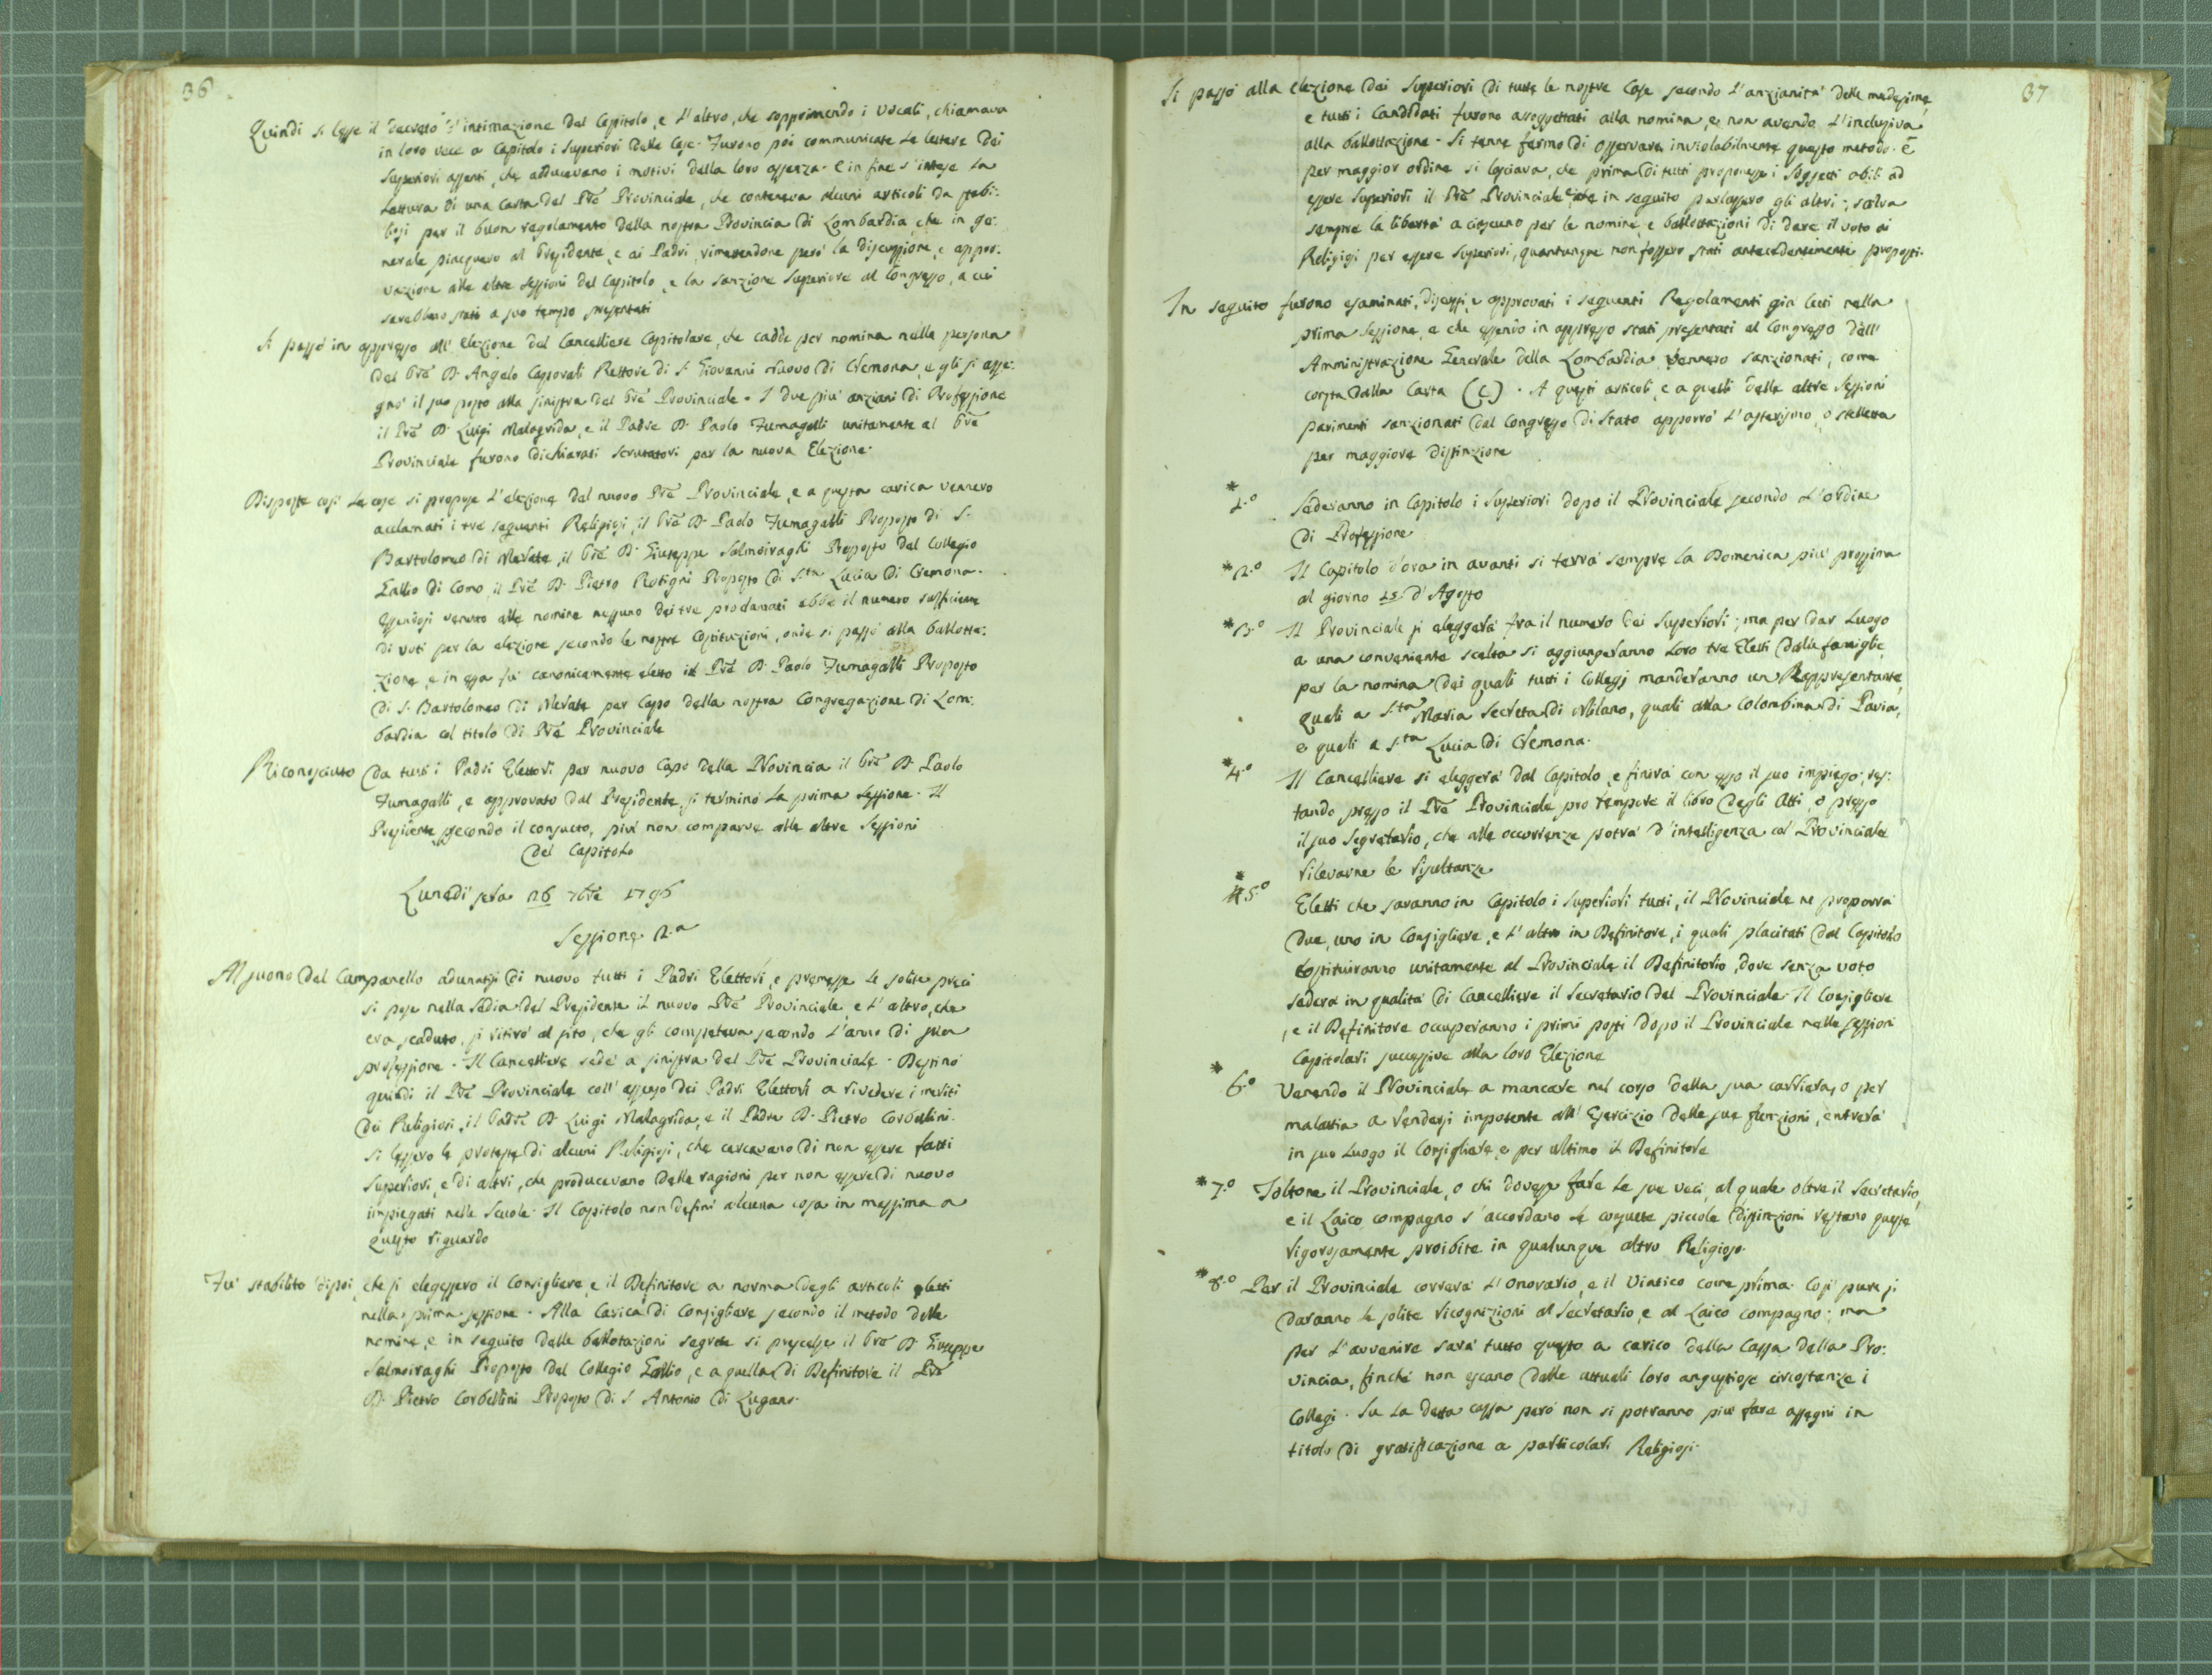 36
Quindi si lesse il decreto d'intimazione del Capitolo, e l'altro, che sopprimendo i Vocali, chiamava
in loro vece a Capitolo i Superiori delle Case. Furono poi communicate le lettere dei
Superiori assenti, che adducevano i motivi della loro assenza. E in fine s'intese la
lettura di una Carta del Pre Provinciale, che conteneva alcuni articoli da stabi:
lirsi per il buon regolamento della nostra Provincia di Lombardia, che in ge:
nerale piacquero al Presidente, e ai Padri, rimettendone però la discussione, e appro:
vazione alle altre sessioni del Capitolo, e la sanzione Superiore al Congresso, a cui
sarebbero stati a suo tempo presentati
Si passò in appresso all'elezione del Cancelliere Capitolare, che cadde per nomina nella persona
del Pre D. Angelo Capsoati Rettore di S. Giovanni nuovo di Cremona, e gli si asse:
gnò il suo posto alla sinistra del Pre Provinciale. I due più anziani di Professione
il Pre D. Luigi Malagrida, e il Padre D. Paolo Fumagalli unitamente al Pre
Provinciale furono dichiarati scrutatori per la nuova Elezione.
Disposte così le cose si propose l'elezione del nuovo Pre Provinciale, e a questa carica vennero
acclamati i tre seguenti Religiosi, il Pre D. Paolo Fumagalli Proposto di S.
Bartolomeo di Merate, il Pre D. Giuseppe Salmoiraghi Proposto del Collegio
Gallio di Como il Pre D. Pietro Rotigni Proposto di S.ta Lucia di Cremona.
Essendosi venuto alle nomine nessuno dei tre proclamati ebbe il numero sufficiente
di voti per la elezione secondo le nostre Costituzioni, onde si passò alla ballotta:
zione, e in essa fu canonicamente eletto il Pre D. Paolo Fumagalli Proposto
di S. Bartolomeo di Merate per Capo della nostra Congregazione di Lom:
bardia col titolo di Pre Provinciale
Riconosciuto da tutti i Padri Elettori per nuovo Capo della Provincia il Pre D. Paolo
Fumagalli, e approvato dal Presidente, si terminò la prima sessione. Il
Presidente secondo il consueto, più non comparve alle altre sessioni
del Capitolo
Lunedì sera 26 7bre 1796
Sessione 2.a
Al suono del Campanello adunatisi di nuovo tutti i Padri Elettori, e premesse le solite preci
si pose nella sedia del Presidente il nuovo Pre Provinciale, e l'altro, che
era scaduto, si ritirò al sito, che gli competeva secondo l'anno di sua
professione. Il Cancelliere sedè a sinistra del Pre Provinciale. Destinò
quindi il Pre Provinciale coll'assenso dei Padri Elettori a rivedere i meriti
dei Religiosi, il Padre D. Luigi Malagrida, e il Padre D. Pietro Corbellini.
Si lessero le proteste di alcuni Religiosi, che cercavano di non essere fatti
Superiori, e di altri, che producevano delle ragioni per non essere di nuovo
impiegati nelle Scuole. Il Capitolo non definì alcuna cosa in massima a
questo riguardo
Fu stabilito dipoi, che si elegessero il Consigliere, e il Definitore a norma degli articoli letti
nella prima sessione. Alla Carica di Consigliere secondo il metodo delle
nomine, e in seguito delle ballotazioni segrete si prescelse il Pre D. Giuseppe
Salmoiraghi Proposto del Collegio Gallio, e a quella di Definitore il Pre
D. Pietro Corbellini Proposto di S. Antonio di Lugano.
37
Si passò alla elezione dei Superiori di tutte le nostre Case secondo l'anzianità delle medesime,
e tutti i Candidati furono assoggettati alla nomina, e non avendo l'inclusiva
alla ballottazione. Si tenne fermo di osservare inviolabilmente questo metodo. E
per maggior ordine si lasciava, che prima di tutti proponesse i soggetti abili ad
essere Superiori il Pre Provinciale, e che in seguito parlassero gli altri; salva
sempre la libertà a ciascuno per le nomine, e ballottazioni di dare il voto ai
Religiosi per essere Superiori, quantunque non fossero stati antecedentemente proposti.
In seguito furono esaminati, discussi, e approvati i seguenti Regolamenti già letti nella
prima sessione, e che essendo in appresso stati presentati al Congresso dell'
Amministrazione Generale della Lombardia vennero sanzionati, come
consta dalla Carta (C). A questi articoli, e a quelli delle altre sessioni
parimenti sanzionati dal Congresso di Stato apporrò l'asterismo, o stelletta
per maggiore distinzione
* 1.o Sederanno in Capitolo i Superiori dopo il Provinciale secondo l'ordine
di Professione
* 2.o Il Capitolo d'ora in avanti si terrà sempre la Domenica più prossima
al giorno 15 d'Agosto
* 3.o Il Provinciale si eleggerà fra il numero dei Superiori; ma per dar luogo
a una conveniente scelta si aggiungeranno loro tre Eletti dalle famiglie,
per la nomina dei quali tutti i Collegj manderanno un Rappresentante,
quali a S.ta Maria Secreta di Milano, quali alla Colombina di Pavia,
e quali a S.ta Lucia di Cremona.
* 4.o Il Cancelliere si eleggerà dal Capitolo, e finirà con esso il suo impiego; res:
tando presso il Pre Provinciale pro tempore il libro degli Atti, o presso
il suo Segretario, che alle occorrenze potrà d'intelligenza col Provinciale
rilevarne le risultanze
* 5.o Eletti che saranno in Capitolo i Superiori tutti, il Provinciale ne proporrà
due, uno in Consigliere, e l'altro in Definitore, i quali placitati dal Capitolo
costituiranno unitamente al Provinciale il Definitorio, dove senza voto
sederà in qualità di Cancelliere il Secretario del Provinciale. Il Consigliere
, e il Definitore occuperanno i primi posti dopo il Provinciale nelle sessioni
Capitolari successive alla loro Elezione
* 6.o Venendo il Provinciale a mancare nel corso della sua carriera, o per
malattia a rendersi impotente all'Esercizio delle sue funzioni, entrerà
in suo luogo il Consigliere, e per ultimo il Definitore
* 7.o Toltone il Provinciale, o chi dovesse fare le sue veci, al quale oltre il Secretario,
e il Laico compagno s'accordano le consuete piccole distinzioni restano queste
rigorosamente proibite in qualunque altro Religioso.
* 8.o Per il Provinciale correrà l'Onorario, e il Viatico come prima. Così pure si
daranno le solite ricognizioni al Secretario, e al Laico compagno; ma
per l'avvenire sarà tutto questo a carico della Cassa della Pro:
vincia, finchè non escano dalle attuali loro angustiose circostanze i
Collegi. Su la detta cassa però non si potranno più fare assegni in
titolo di gratificazione a particolari Religiosi.